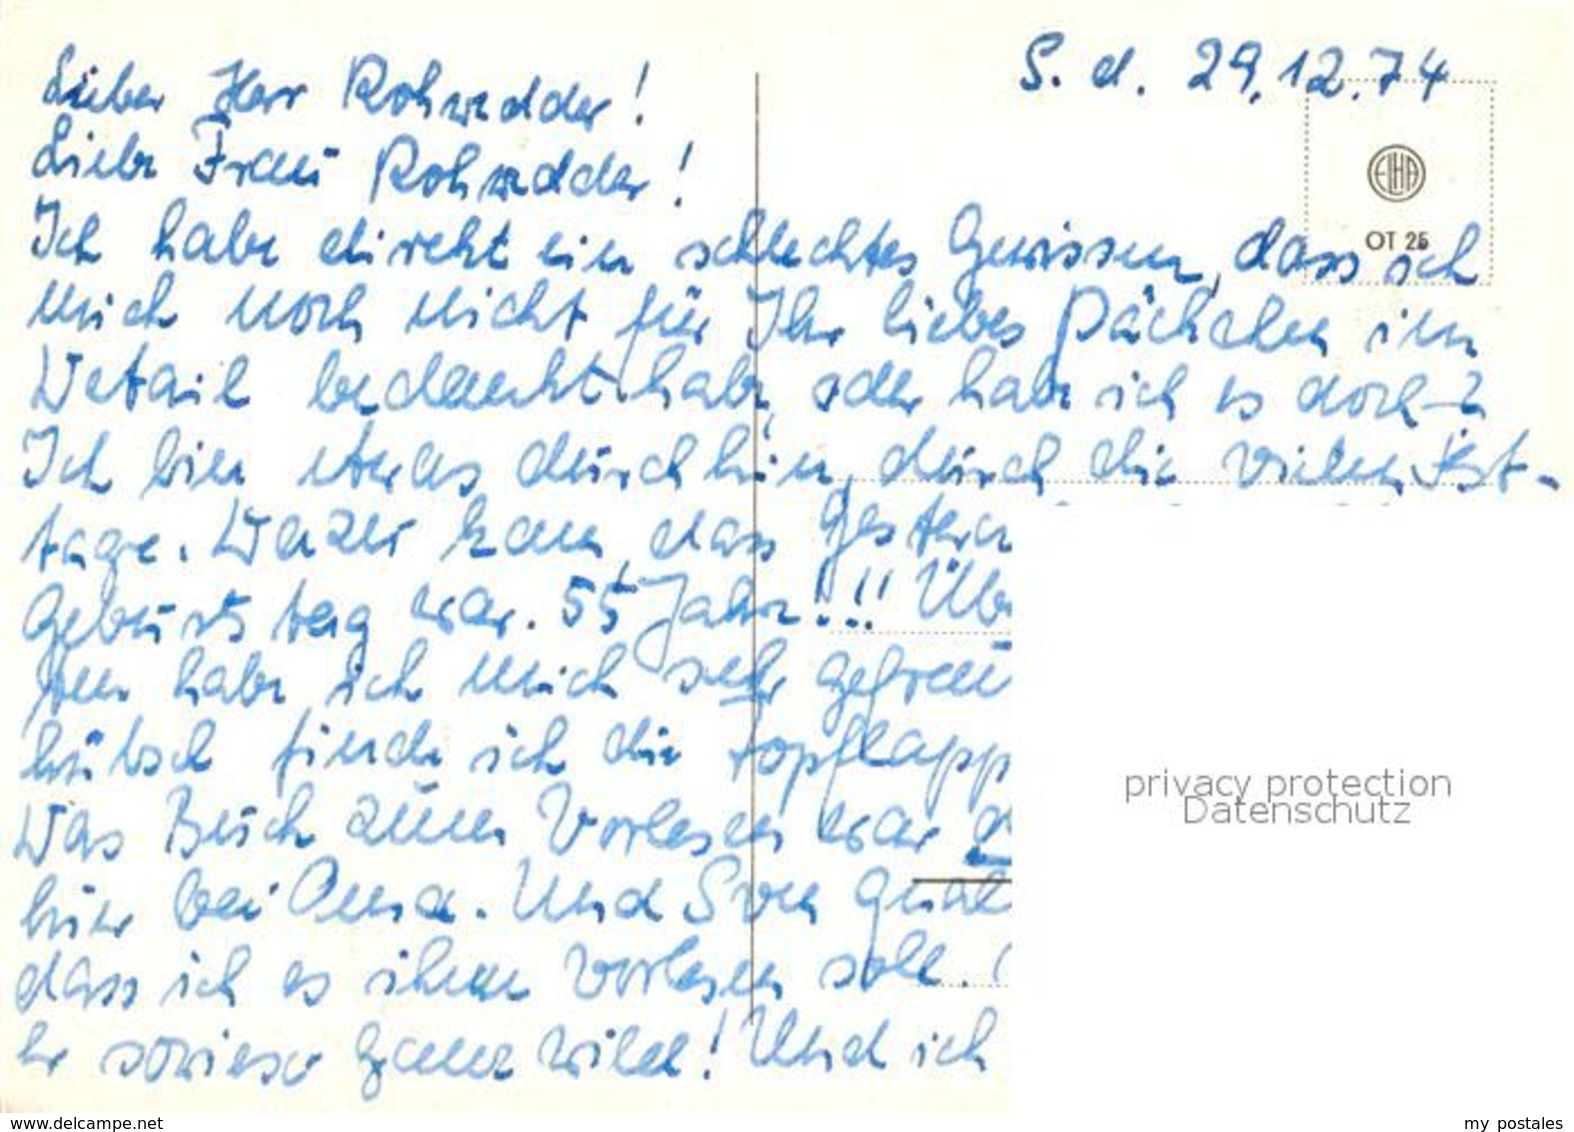 S. d. 29.12.74
Lieber Herr Rohwedder!
Liebe Frau Rohwedder!
ELHA
OT 25
Ich habe direkt ein schlechtes Gewissen, dass ich
mich noch nicht für Ihr liebes Päckchen im
Detail bedankt habe, oder habe ich es doch-?
Ich bin etwas durch hin, durch die vielen Fest-
tage. Dazu kam, dass gestern
Geburtstag war. 55 Jahre!!! Üb
habe ich mich sehr gefreu
hübsch finde ich die Topflapp
Das Buch zum Vorlesen war
hier bei Oma. Und Sven
dass ich es ihm vorlesen soll. (
er sowieso ganz wild! Und ich
privacy protection
Datenschutz
www.delcampe.net
my postales